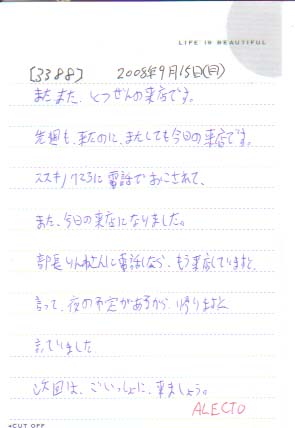 LIFE IS BEAUTIFUL
[3388] 2008年9月15日(月)
また、また、とつぜんの来店です。
先週も、来たのに、またしても今日の来店です。
ススキノ に電話でおこされて、
また、今日の来店になりました。
部長 に電話したら、もう来店していますと、
言って、夜の予定があるから、帰りますと
言っていました
次回は、ごいっしょに、来ましょう。
ALECTO
◂CUT OFF